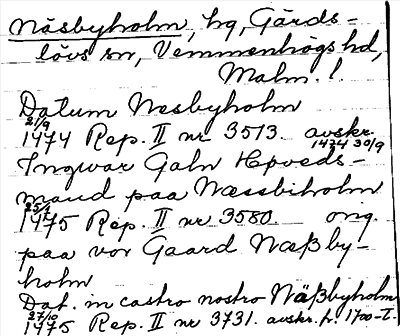 Näsbyholm, hg, Gärds-
lövs sn, Vemmenhögs hd,
Malm. l.
Datum Nesbyholm
21/9
1474 Rep. II nr 3513. avskr.
1474 30/9
Ingwar Galn Høveds-
mand paa Næssbiholm
1475 Rep. II nr 3580 orig
paa vor Gaard Næßby-
holm
Dat. in castro nostro Näßbyholm
27/10
1475 Rep. II nr 3731. avskr. fr. 1700-t.